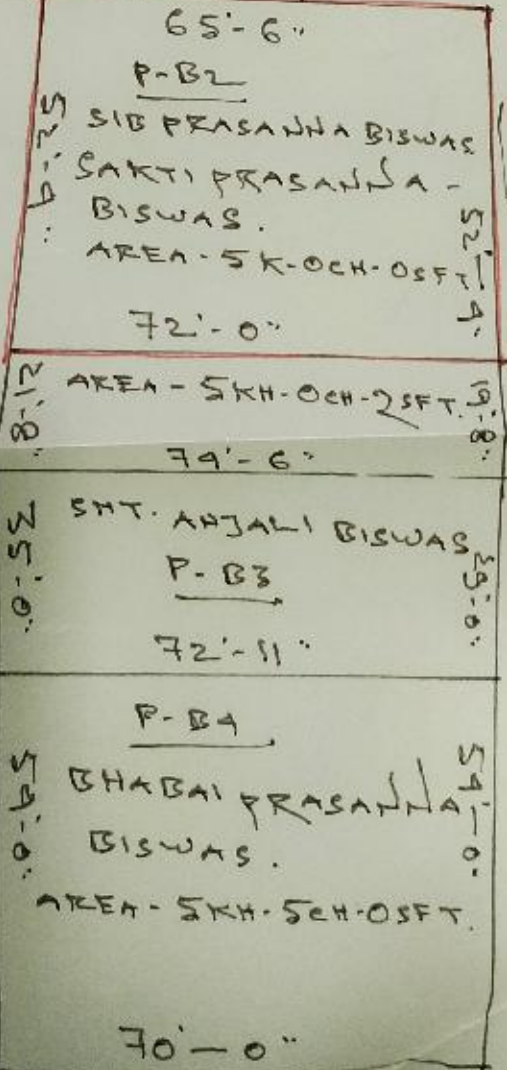 65'-6"
P-B2
SIB PRASANNA BISWAS
SAKTI PRASANNA -
BISWAS.
AREA - 5K-0CH-0SFT
52'-9"
52'-9"
72'-0"
AREA - 5KH-0CH-2SFT.
21'-8"
19'-8"
74'-6"
SMT. ANJALI BISWAS
P-B3
35'-0"
39'-0"
72'-11"
P-B4
BHABAI PRASANNA
BISWAS.
54'-0"
54'-0"
AREA - 5KH-5CH-0SFT.
70'-0"